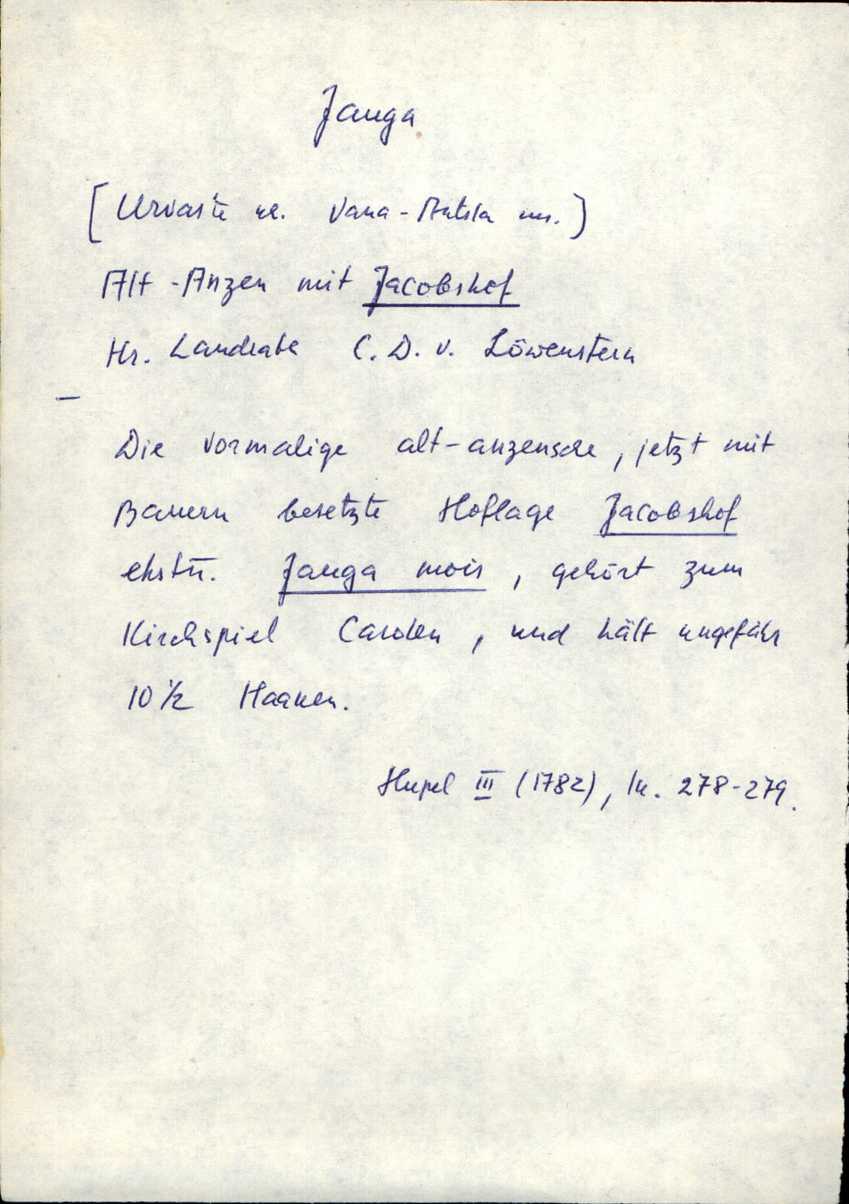 Jauga
[Urvaste kr. Vana-Antsla ms.]
Alt-Anzen mit Jacobshof
Hr. Landrath C. D. v. Löwenstern
—
Die vormalige alt-anzensche, jetzt mit
Bauern besetzte Hoflage Jacobshof
ehstn. Jauga mois, gehört zum
Kirchspiel Carolen, und hält ungefähr
10 1/2 Haaken.
Hupel III (1782), lk. 278-279.